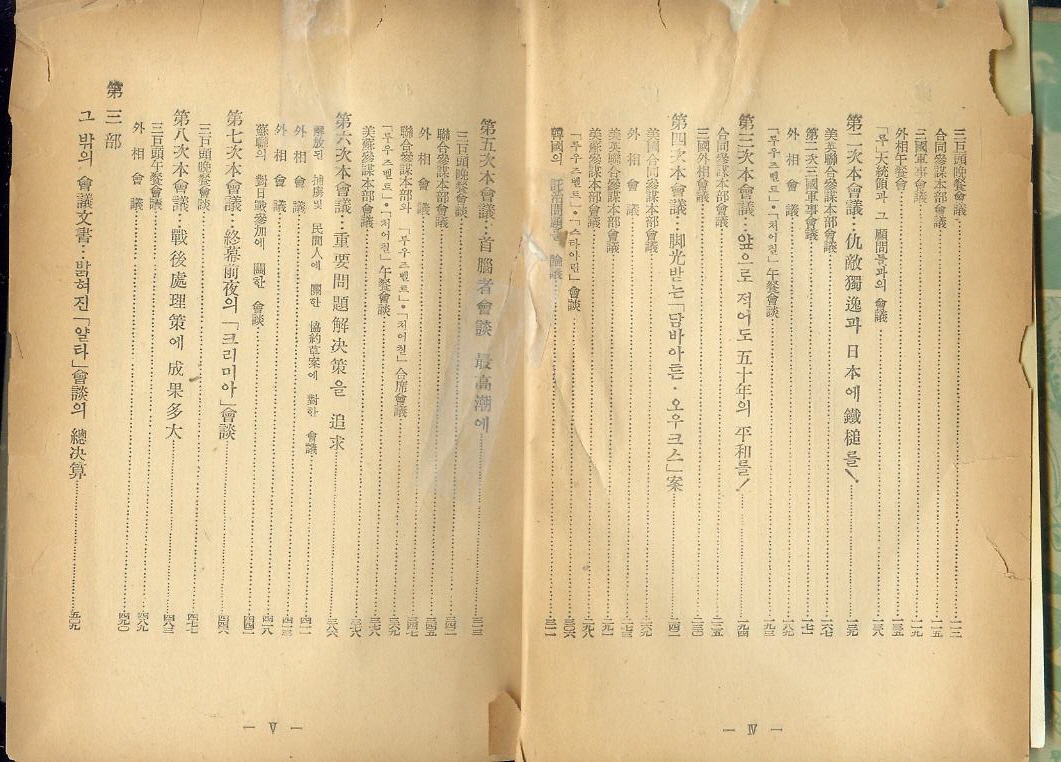 三巨頭晩餐會議
合同參謀本部會議
三國軍事會議
外相午餐會
「루」大統領과 그 顧問들과의 會議
第二次本會議‥仇敵獨逸과 日本에 鐵槌를!
美英聯合參謀本部會議
第二次三國軍事會議
外相會議
「루우즈벨트」・「처어칠」午餐會談
第三次本會議‥앞으로 적어도 五十年의 平和를!
合同參謀本部會議
三國外相會議
第四次本會議‥脚光받는「담바아튼・오우크스」案
美國合同參謀本部會議
外相會議
美英聯合參謀本部會議
美蘇參謀本部會議
「루우즈벨트」・「스타아린」會談
韓國의 託治問題를 論議
— Ⅳ —
第五次本會議‥首腦者會談 最高潮에
三巨頭晩餐會談
聯合參謀本部會議
外相會議
聯合參謀本部와「루우즈벨트」・「처어칠」合席會議
「루우즈벨트」・「처어칠」午餐會談
美蘇參謀本部會議
第六次本會議‥重要問題解决策을 追求
解放된 捕虜및 民間人에 關한 協約草案에 對한 會議
外相會議
外相會議
蘇聯의 對日戰參加에 關한 會談
第七次本會議‥終幕前夜의「크리미아」會談
三巨頭晩餐會談
第八次本會議‥戰後處理策에 成果多大
三巨頭午餐會議
外相會議
第三部
그 밖의 會議文書‥밝혀진「얄타」會談의 總決算
— Ⅴ —